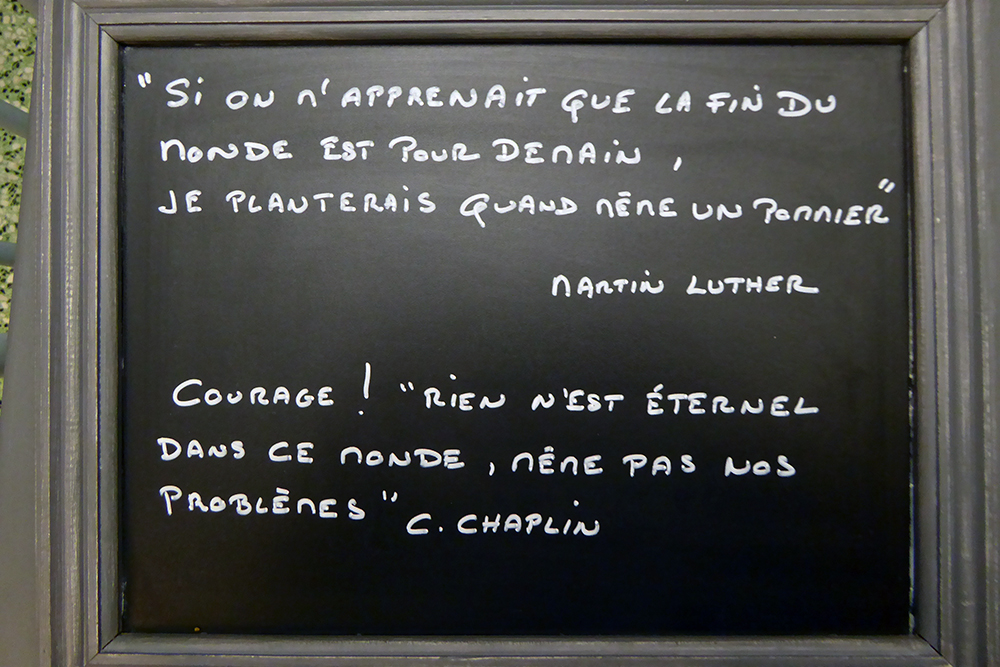 "Si ON M'APPRENAiT QUE LA FiN DU
MONDE EST POUR DEMAiN ,
JE PLANTERAiS QUAND MÊME UN POMMiER"
MARTiN LUTHER
COURAGE ! "RiEN N'EST ÉTERNEL
DANS CE MONDE , MÊME PAS NOS
PROBLÈMES"
C. CHAPLiN